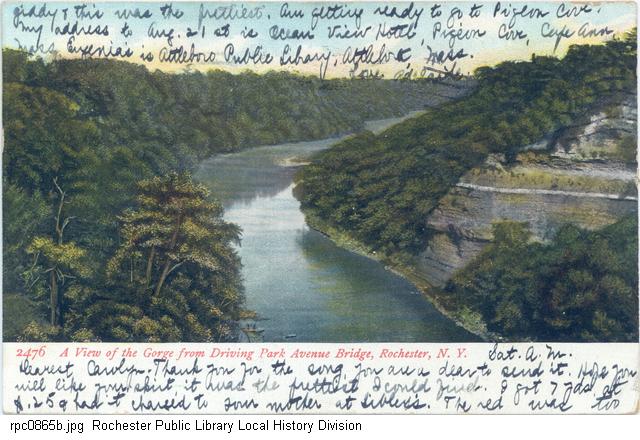 giddy & this was the prettiest. Am getting ready to go to Pigeon Cove.
My address to Aug. 21 st is Ocean View Hotel, Pigeon Cove, Cape Ann,
Mass. Eugenia's is Attleboro Public Library, Attleboro, Mass.
Love, Adelaide
2476 A View of the Gorge from Driving Park Avenue Bridge, Rochester, N. Y.
Sat. A. M.
Dearest Carolyn. Thank you for the song, you are a dear to send it. Hope you
will like your skirt, it was the prettiest I could find. I got 7 yds at
$1.25 & had it charged to your mother at Sibley's. The red was too
rpc0865b.jpg Rochester Public Library Local History Division